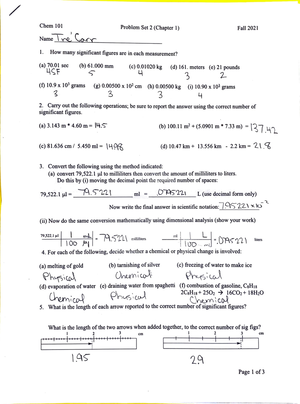 Chem 101 Problem Set 2 (Chapter 1) Fall 2021
Name Tre' Carr
1. How many significant figures are in each measurement?
(a) 70.01 sec (b) 61.000 mm (c) 0.01020 kg (d) 161. meters (e) 21 pounds
4SF 5 4 3 2
(f) 10.9 x 10³ grams (g) 0.00500 x 10² cm (h) 0.00500 kg (i) 10.90 x 10³ grams
3 3 3 4
2. Carry out the following operations; be sure to report the answer using the correct number of
significant figures.
(a) 3.143 m * 4.60 m = 14.5 (b) 100.11 m² + (5.0901 m * 7.33 m) = 137.42
(c) 81.636 cm / 5.450 ml = 14.98 (d) 10.47 km + 13.556 km - 2.2 km = 21.8
3. Convert the following using the method indicated:
(a) convert 79,522.1 µl to milliliters then convert the amount of milliliters to liters.
Do this by (i) moving the decimal point the required number of spaces:
79,522.1 µl = 79.5221 ml = .0795221 L (use decimal form only)
Now write the final answer in scientific notation: 7.95221 x10⁻²
(ii) Now do the same conversion mathematically using dimensional analysis (show your work)
79,522.1 µl 1 mL = 79.5221 milliliters 1 L = .0795221 liters
4. For each of the following, decide whether a chemical or physical change is involved:
(a) melting of gold (b) tarnishing of silver (c) freezing of water to make ice
Physical Chemical Physical
(d) evaporation of water (e) draining water from spaghetti (f) combustion of gasoline, C₈H₁₈
2C₈H₁₈ + 25O₂ → 16CO₂ + 18H₂O
Chemical Physical Chemical
5. What is the length of each arrow reported to the correct number of significant figures?
What is the length of the two arrows when added together, to the correct number of sig figs?
1 2 3 cm 1 2 3 cm
1.95 2.9
Page 1 of 3